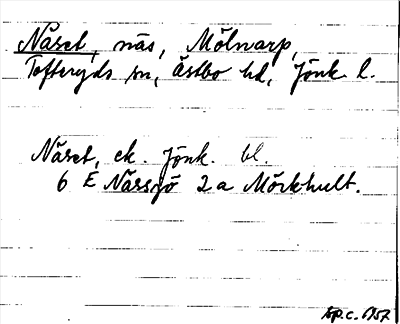 Näset, näs, Mölnarp,
Tofteryds sn, Östbo hd, Jönk. l.
Näset, ek. Jönk. bl.
6 E Nässjö 2a Mörkhult.